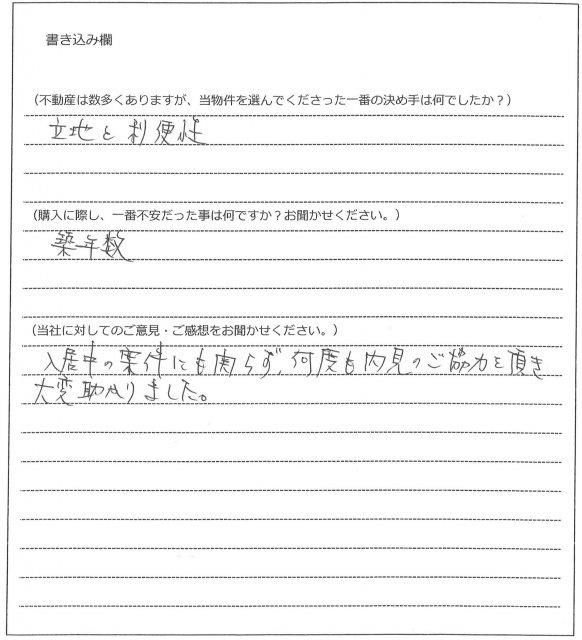 書き込み欄
(不動産は数多くありますが、当物件を選んでくださった一番の決め手は何でしたか?)
立地と利便性
(購入に際し、一番不安だった事は何ですか?お聞かせください。)
築年数
(当社に対してのご意見・ご感想をお聞かせください。)
入居中の案件にも関らず、何度も内見のご協力を頂き
大変助かりました。